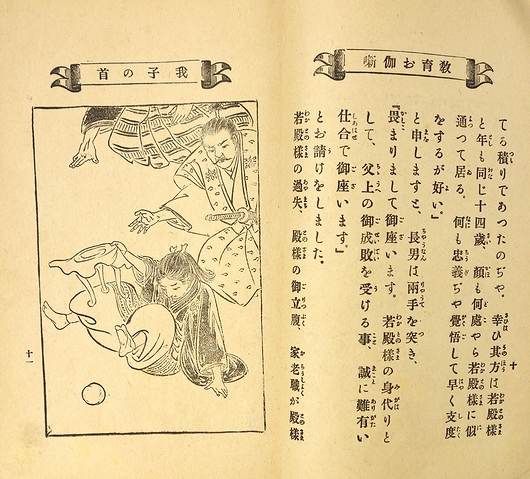 教育お伽噺
てる積りであつたのぢや。幸ひ其方は若殿様
と年も同じ十四歳、顔も何處やら若殿様に似
通つて居る。何も忠義ぢや覺悟して早く支度
をするが好い。』
と申しますと、長男は兩手を突き、
『畏まりまして御座います。若殿様の身代りと
して、父上の御成敗を受ける事、誠に難有い
仕合で御座います』
とお請けをしました。
若殿様の過失、殿様の御立腹、家老職が殿様
十
我子の首
十一